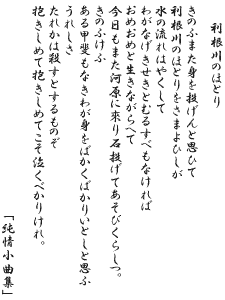 利根川のほとり
きのふまた身を投げんと思ひて
利根川のほとりをさまよひしが
水の流れはやくして
わがなげきせきとむるすべもなければ
おめおめと生きながらへて
今日もまた河原に來り石投げてあそびくらしつ。
きのふけふ
ある甲斐もなきわが身をばかくばかりいとしと思ふ
うれしさ
たれかは殺すとするものぞ
抱きしめて抱きしめてこそ泣くべかりけれ。
「純情小曲集」